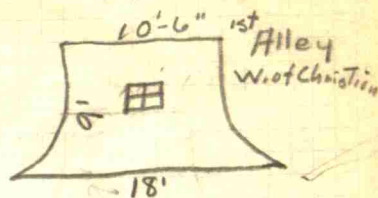 10'-6" 1st
Alley
W. of Christian
9'
18'